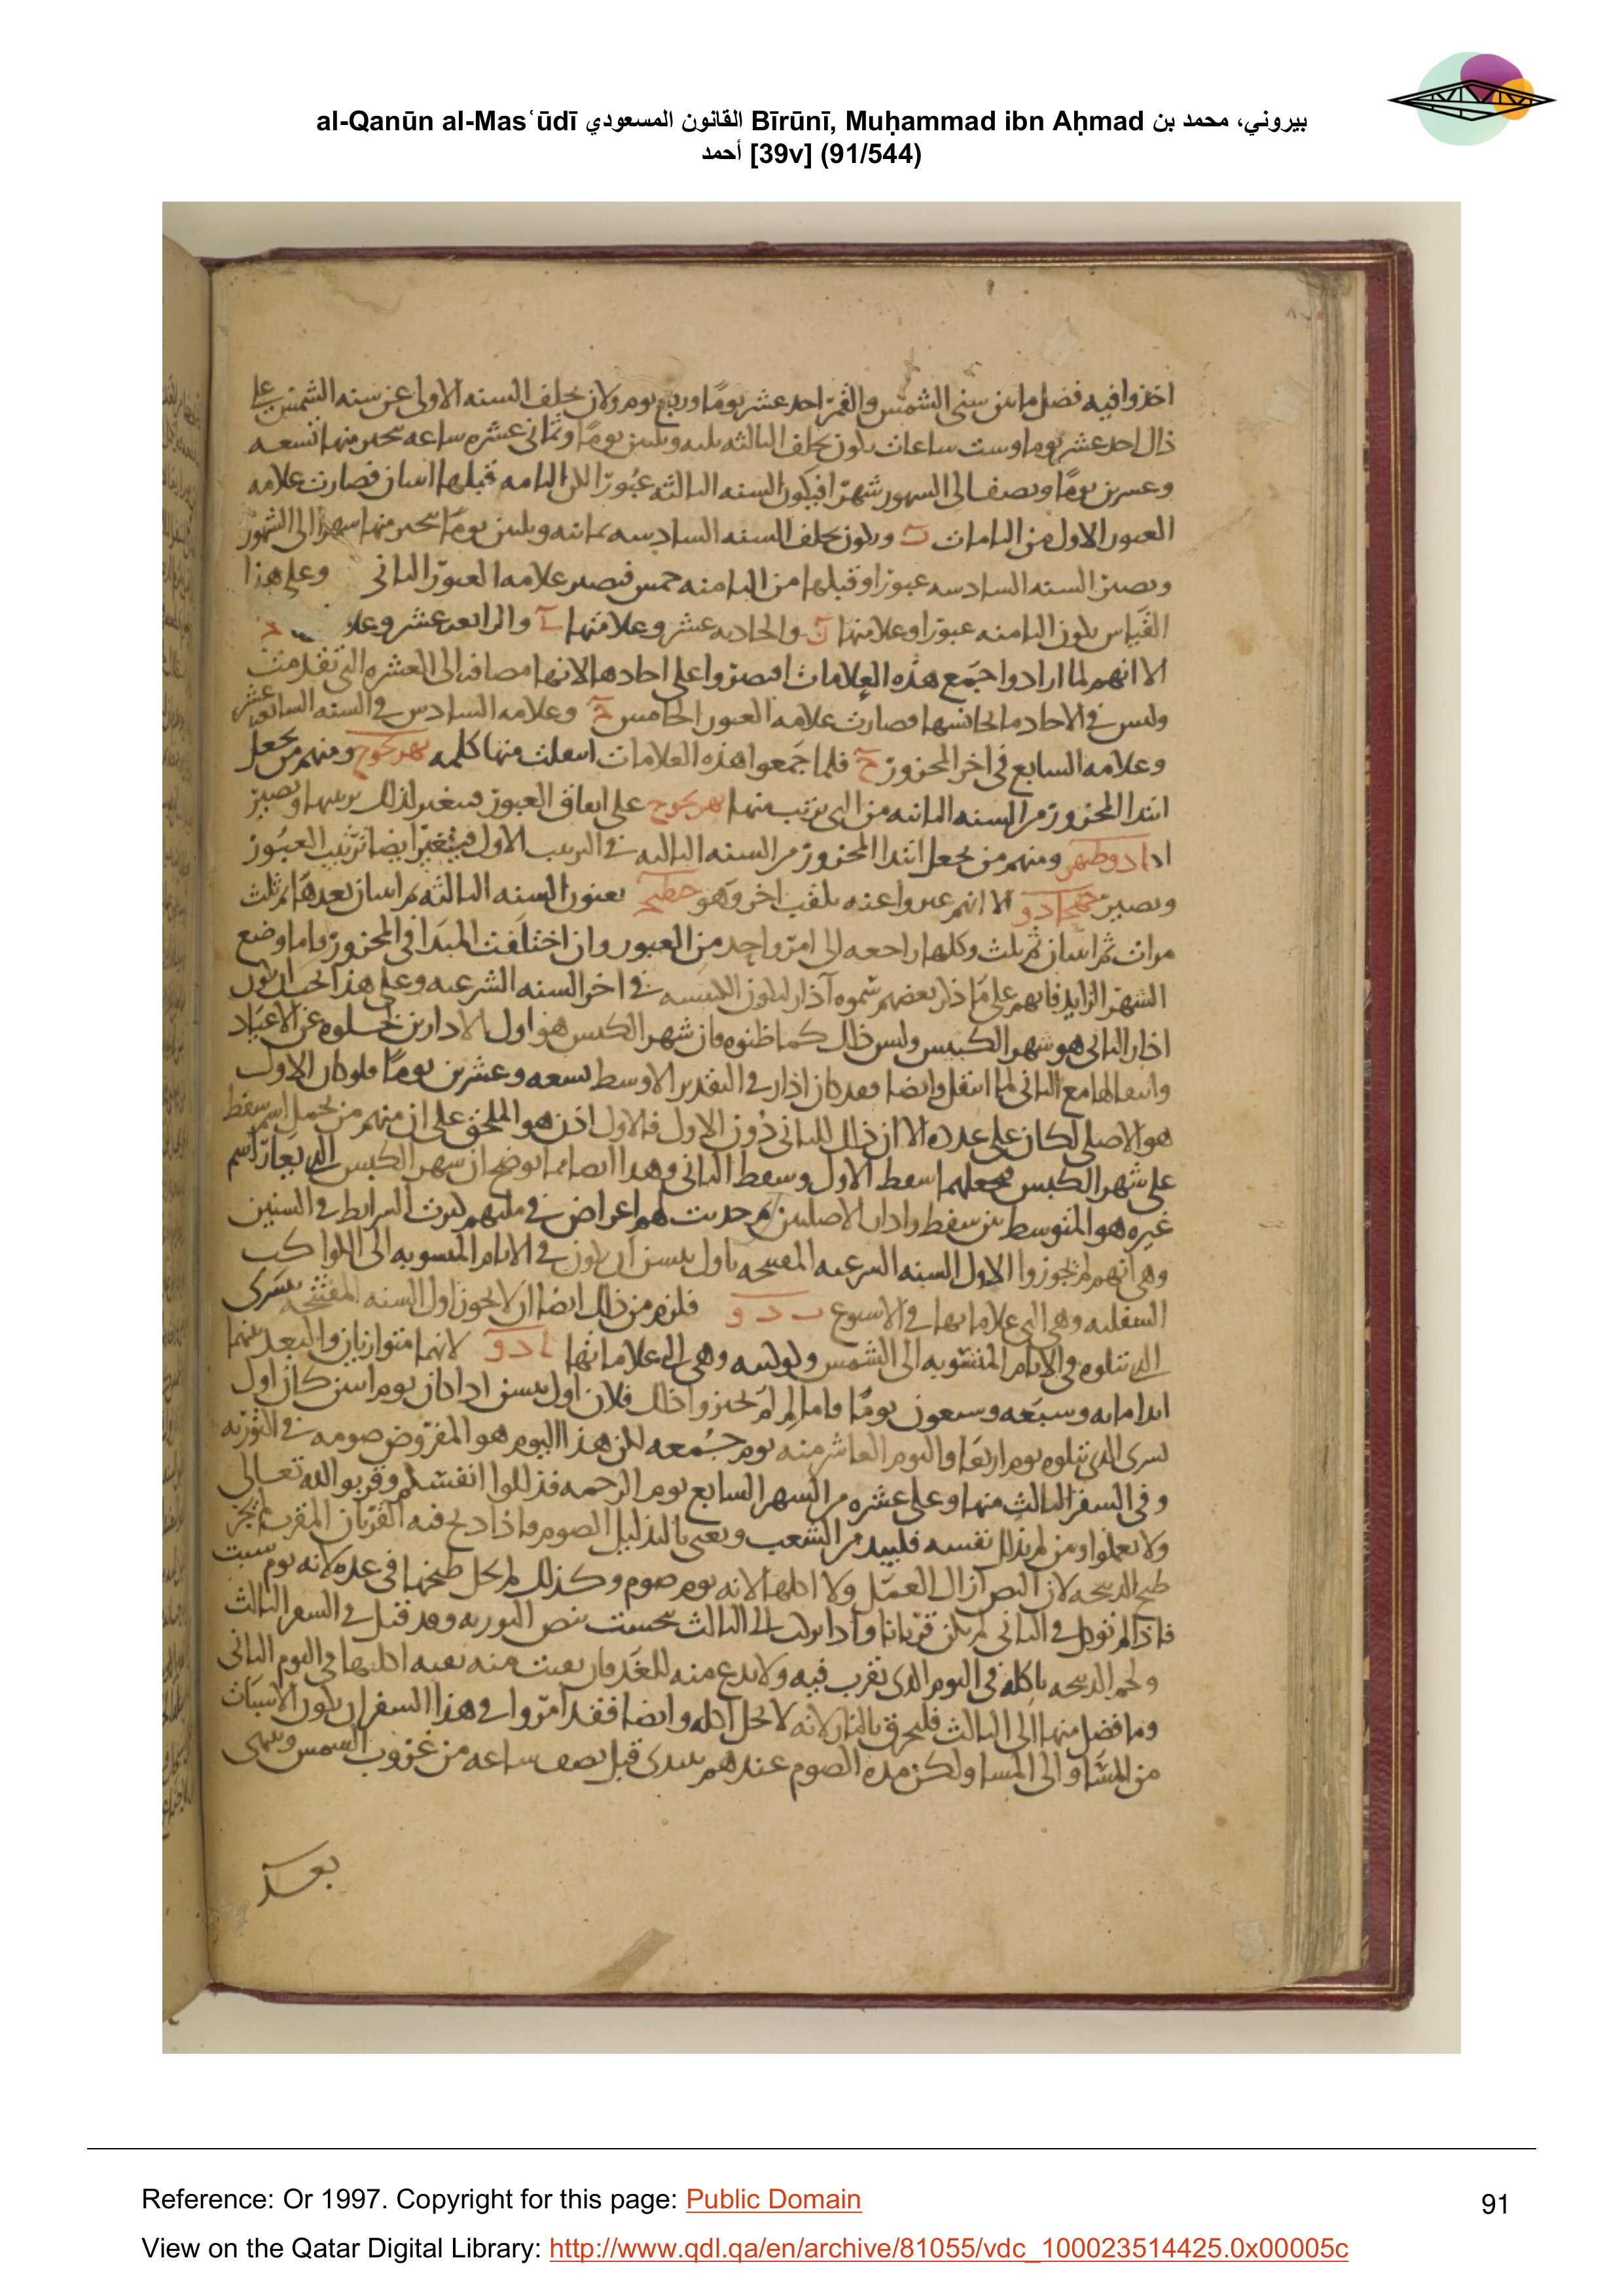 al-Qanūn al-Masʿūdī القانون المسعودي Bīrūnī, Muḥammad ibn Aḥmad بيروني، محمد بن
أحمد [39v] (91/544)
اخذوا فيه فضل ما بين سنى الشمس والقمر احد عشر يوما وربع يوم ولان تخلف السنه الاولى عن سنه الشمس على
ذلك احد عشر يوما وست ساعات يكون تخلف الثالثه ثلثه وثلثين يوما وثمانى عشره ساعه ينجبر منها تسعه
وعشرين يوما ونصف الى الشهور شهرا فيكون السنه الثالثه عبورا لكن التامه قبلها اثنان فصارت علامه
العبور الاول من التامات ب ويكون تخلف السنه السادسه ثمانيه وثلثين يوما ينجبر منها شهر الى الشهور
وتصير السنه السادسه عبورا وقبلها من التامه خمس فتصير علامه العبور الثانى وعلى هذا
القياس يكون الثامنه عبورا وعلامتها ز والحاديه عشر وعلامتها ى والرابعه عشر
الا انهم لما ارادوا جمع هذه العلامات اقتصروا على احادها لانها مضافه الى العشره التى تقدمت
وليس فى الاحاد ما يجانسها فصارت علامه العبور الخامس ج وعلامه السادس فى السنه السابع عشر
وعلامه السابع فى اخر المحزور ح فلما جمعوا هذه العلامات منها كلمه بهزيجوح ومنهم من يجعل
ابتدا المحزور من السنه الثانيه من التى ترتب منها بهزيجوح على اتفاق العبور فيتغير لذلك ترتيبها وتصير
ادوطبهز ومنهم من يجعل ابتدا المحزور من السنه الثالثه فى الترتيب الاول فيتغير ايضا ترتيب العبور
وتصير الا انهم عبروا عنه بلقب اخر وهو يعنون السنه الثالثه ثم اثنان بعدها ثم ثلث
مرات ثم اثنان ثم ثلث وكلها راجعه الى امر واحد من العبور وان اختلفت المبدا فى المحزور فاما وضع
الشهر الزايد فانهم على ما ذكر بعضهم سموه آذار ليكون الكبيسه فى اخر السنه الشرعيه وعلى هذا يجب ان يكون
اذار الثانى هو شهر الكبيس وليس ذلك كما ظنوه فان شهر الكبس هو اول الاذارين لخلوه عن الاعياد
وانتقالها مع الثانى لما انتقل وايضا فقد كان اذار فى التقدير الاوسط تسعه وعشرين يوما فلو كان الاول
هو الاصلى لكان على عدده الا ان ذلك للثانى دون الاول فالاول اذن هو الملحق على ان منهم من يحمل اسم سفط
على شهر الكبس فيجعلهما سفط الاول وسفط الثانى وهذا ايضا مما يوضح ان شهر الكبس الذى يعار اسم
غيره هو المتوسط بين سفط واذار الاصليين ثم حدثت لهم اعراض فى ملتهم كثرت الشرايط فى السنين
وهى انهم لم يجوزوا لاول السنه الشرعيه المفتتحه باول نيسن ان يكون فى الايام المنسوبه الى الكواكب
السفليه وهى التى علاماتها فى الاسبوع ب د و فلزم من ذلك ايضا ان لا يجوز اول السنه المفتتحه بتشرى
الذى تتلوه فى الايام المنسوبه الى الشمس وكوكبيه وهى التى علاماتها ا د و لانهما متوازيان والبعد بينهما
ابدا مايه وسبعه وسبعون يوما واما لم لم يجيزوا ذلك فلان اول نيسن اذا كان يوم اثنين كان اول
تشرى الذى يتلوه يوم اربعا واليوم العاشر منه يوم جمعه لكن هذا اليوم هو المفروض صومه فى التوريه
وفى السفر الثالث منها وعلى عشره من الشهر السابع يوم الرحمه فذللوا انفسكم وقربوا لله تعالى
ولا تعملوا ومن لم يذلل نفسه فليبد من الشعب ويعنى بالتذليل الصوم فاذا ذبح فيه القربان المقرب لم يجز
طبخ الذبيحه لان النص ازال العمل ولا اكلها لانه يوم صوم وكذلك لم يحل طبخها فى غده لانه يوم سبت
فاذا لم توكل فى الثانى لم يكن قربانا واذا تركت الى الثالث نجست بنص التوريه وقد قيل فى السفر الثالث
ولحم الذبيحه ياكله فى اليوم الذى تقرب فيه ولا يدع منه للغد فان بقيت منه بقيه اكلها فى اليوم الثانى
وما فضل منها الى الثالث فليحرق بالنار لانه لا يحل اكله وايضا فقد امروا فى هذا السفر ان يكون الاسبات
من المسا والى المسا ولكن مده الصوم عندهم يبتدى قبل نصف ساعه من غروب الشمس وينتهى
بعد
Reference: Or 1997. Copyright for this page: Public Domain
91
View on the Qatar Digital Library: http://www.qdl.qa/en/archive/81055/vdc_100023514425.0x00005c